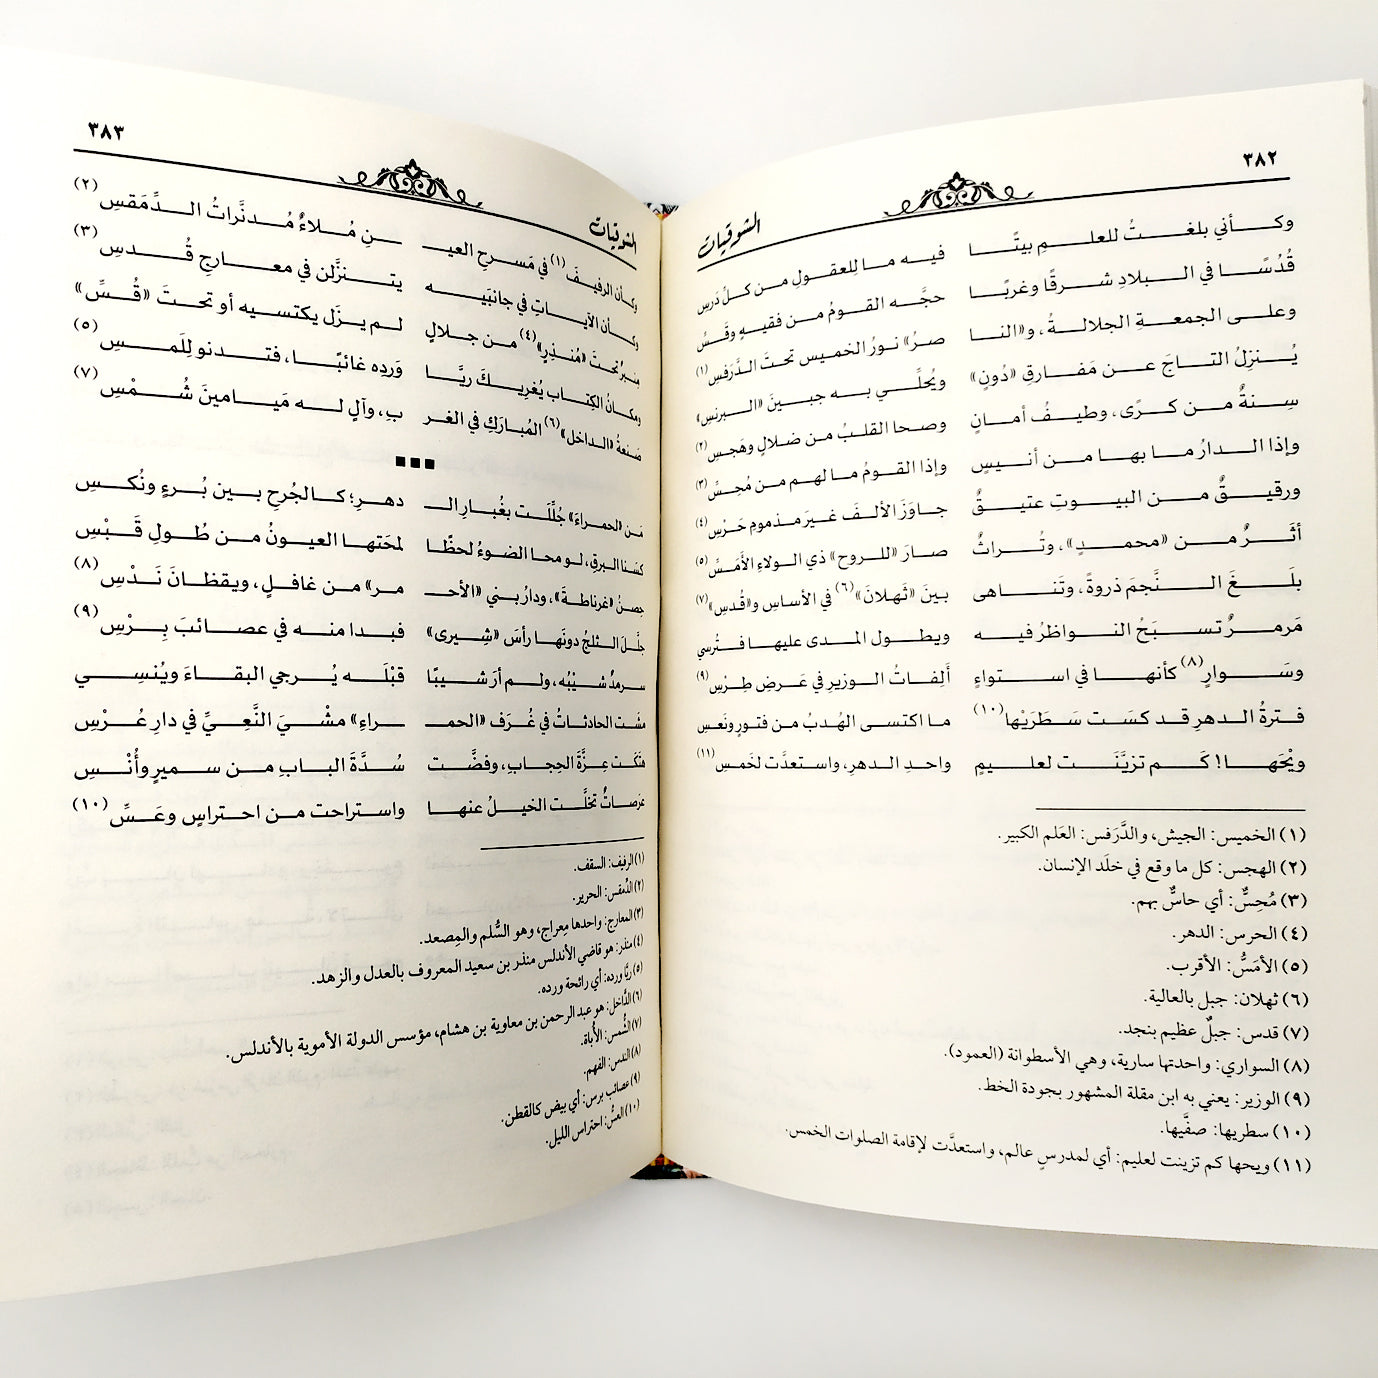 ٣٨٢
الشوقيات
وكـأني بلغـتُ للعلـمِ بيتًـا فيـه مـا لِلعقولِ مـن كلِّ دَرسِ
قُدُسًـا في البـلادِ شـرقًا وغربًـا حجَّه القـومُ مـن فقيـهٍ وقَسُّ
وعلـى الجمعـةِ الجلالـةُ، و«النـا صرُ» نـورُ الخميسِ تحتَ الدَّرَفسِ(١)
يُـنزلُ التـاجَ عـن مَفـارقِ «دُونٍ» ويُحلِّـي بـه جبيـنَ «البرنسِ»
سِنةٌ مـن كـرًى، وطيـفُ أمـانٍ وصحا القلبُ مـن ضلالٍ وهَجسِ(٢)
وإذا الـدارُ مـا بهـا مـن أنيـسٍ وإذا القـومُ مـا لهـم مـن مُحِسِّ(٣)
ورقيـقٌ مـن البيـوتِ عتيـقٌ جـاوَزَ الألـفَ غيرَ مذمومِ حَرْسِ(٤)
أثَـرٌ مـن «محمـدٍ»، وتُـراثٌ صارَ «للروح» ذي الولاءِ الأَمَسِّ(٥)
بلَـغَ النَّجـمَ ذروةً، وتَناهـى بينَ «ثَهلانَ»(٦) في الأساسِ و«قُدسِ»(٧)
مَرمـرٌ تسبَـحُ النواظـرُ فيـه ويطـول المـدى عليهـا فـتُرسي
وسَـوارٍ(٨) كأنهـا في استـواءٍ أَلِفـاتُ الوزيـرِ في عَـرضِ طِرْسِ(٩)
فـترةُ الدهـرِ قـد كسَـت سَطَرَيْهـا(١٠) ما اكتسى الهُدبُ من فتورٍ ونَعسِ
ويْحَهـا! كَـم تزيَّنَـت لعليـمٍ واحدِ الدهرِ، واستعدَّت لخَمسِ(١١)
(١) الخميس: الجيش، والدَّرَفس: العَلم الكبير.
(٢) الهجس: كل ما وقع في خلَد الإنسان.
(٣) مُحِسٌّ: أي حاسٌّ بهم.
(٤) الحرس: الدهر.
(٥) الأمَسُّ: الأقرب.
(٦) ثهلان: جبل بالعالية.
(٧) قدس: جبلٌ عظيم بنجد.
(٨) السواري: واحدتها سارية، وهي الأسطوانة (العمود).
(٩) الوزير: يعني به ابن مقلة المشهور بجودة الخط.
(١٠) سطريها: صفَّيها.
(١١) ويحها كم تزينت لعليم: أي لمدرسٍ عالم، واستعدَّت لإقامة الصلوات الخمس.
٣٨٣
الشوقيات
وكـأن الرفيفَ(١) في مَسـرحِ العيـ ـنِ مُـلاءٌ مُدنَّراتُ الدِّمَقسِ(٢)
وكـأن الآيـاتِ في جانبَيـه يتنـزَّلن في معـارجِ قُـدسِ(٣)
منبرٌ تحتَ «مُنذِرٍ»(٤) مـن جـلالٍ لـم يـزَل يكتسيـه أو تحـتَ «قُسِّ»
ومكانُ الكِتـاب يُغريـكَ ريَّـا وَردِه غائبًـا، فتـدنو لِلَمـسِ(٥)
صَنعةُ «الداخل»(٦) المُبـارَكِ في الغر بِ، وآلٍ لـه مَيـامينَ شُـمْسِ(٧)
■■■
مَن «الحمراءَ» جُلِّلَـت بغُبـارِ الـ دهـرِ؛ كـالجُرحِ بـين بُـرءٍ ونُكـسِ
كسَنا البرقِ، لـو محا الضوءُ لحظًا لمحَتهـا العيـونُ مـن طُـولِ قَـبْسِ
حِصنُ «غرناطةَ»، ودارُ بني «الأحـ مر» من غافلٍ، ويقظانَ نَدْسِ(٨)
جلَّلَ الثلجُ دونَهـا رأسَ «شِيرى» فبـدا منـه في عصائـبَ بِـرْسِ(٩)
سرمدٌ شَيْبُه، ولـم أرَ شيبًا قبْلَـه يُـرجي البقـاءَ ويُنسِـي
مشَت الحادثاتُ في غُرَف «الحمـ ـراءِ» مشْيَ النَّعِيِّ في دارِ عُـرْسِ
هتَكَت عِزَّةَ الحِجـابِ، وفضَّـت سُـدَّةَ البـابِ مـن سميرٍ وأُنْـسِ
عرَصاتٌ تخلَّـت الخيـلُ عنهـا واستراحت مـن احتراسٍ وعَـسِّ(١٠)
(١) الرفيف: السقف.
(٢) الدُّمقس: الحرير.
(٣) المعارج: واحدها مِعراج، وهو السُّلم والمِصعد.
(٤) منذر: هو قاضي الأندلس منذر بن سعيد المعروف بالعدل والزهد.
(٥) ريَّا ورده: أي رائحة ورده.
(٦) الدَّاخل: هو عبد الرحمن بن معاوية بن هشام، مؤسس الدولة الأموية بالأندلس.
(٧) الشُّمس: الأُباة.
(٨) الندس: الفهم.
(٩) عصائب برس: أي بيض كالقطن.
(١٠) العسُّ: احتراس الليل.